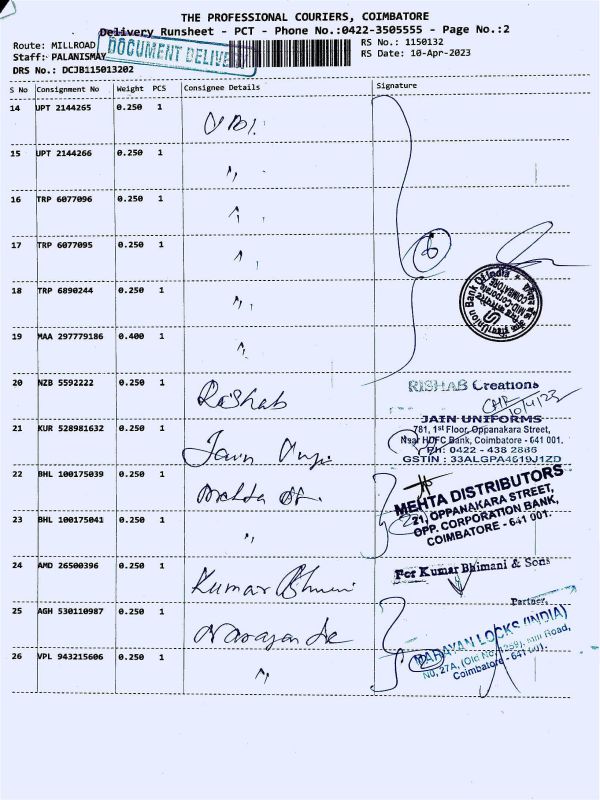 THE PROFESSIONAL COURIERS, COIMBATORE
Delivery Runsheet - PCT - Phone No.:0422-3505555 - Page No.:2
Route: MILLROAD
DOCUMENT DELIVE
RS No.: 1150132
Staff: PALANISMAY
RS Date: 10-Apr-2023
DRS No.: DCJB115013202
S No Consignment No Weight PCS Consignee Details Signature
14 UPT 2144265 0.250 1 UBI.
15 UPT 2144266 0.250 1 "
16 TRP 6077096 0.250 1 "
17 TRP 6077095 0.250 1 "
6
18 TRP 6890244 0.250 1 "
Union Bank Of India
MID-Corporate
COIMBATORE
19 MAA 297779186 0.400 1 "
20 NZB 5592222 0.250 1 Rishab
RISHAB Creations
10/4/23
21 KUR 528981632 0.250 1 Jain
JAIN UNIFORMS
781, 1st Floor, Oppanakara Street,
Near HDFC Bank, Coimbatore - 641 001.
Ph: 0422 - 438 2886
GSTIN : 33ALGPA4619J1ZD
22 BHL 100175039 0.250 1 Mehta
MEHTA DISTRIBUTORS
21, OPPANAKARA STREET,
OPP. CORPORATION BANK,
COIMBATORE - 641 001.
23 BHL 100175041 0.250 1 "
24 AMD 26500396 0.250 1 Kumar Bhimani
For Kumar Bhimani & Sons
Partner.
25 AGH 530110987 0.250 1 Narayan
NARAYAN LOCKS (INDIA)
No, 27A, (Old No. 1259), Mill Road,
Coimbatore - 641 001.
26 VPL 943215606 0.250 1 "